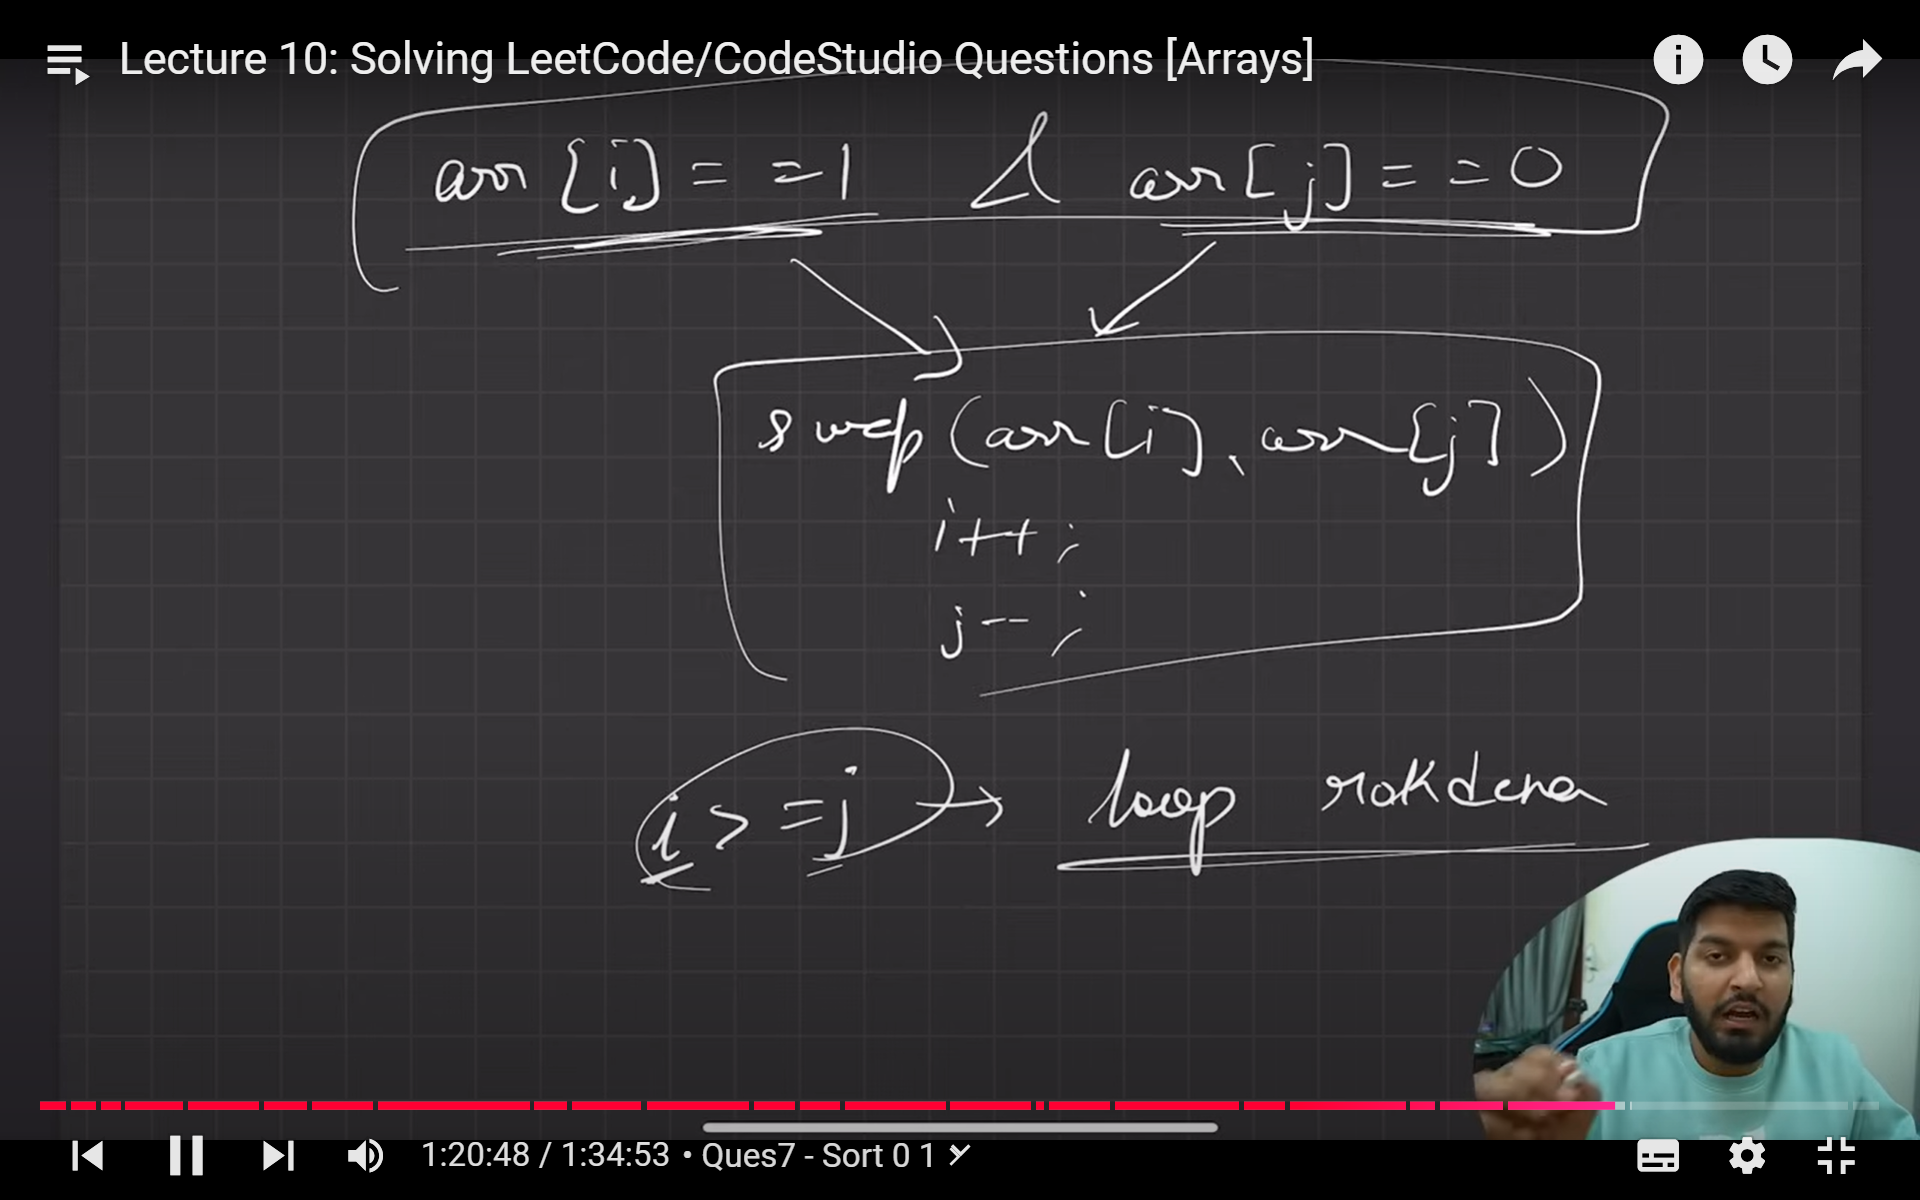 Lecture 10: Solving LeetCode/CodeStudio Questions [Arrays]
arr[i]==1 & arr[j]==0
swap(arr[i], arr[j])
i++;
j--;
i>=j → loop rokdena
1:20:48 / 1:34:53 • Ques7 - Sort 0 1